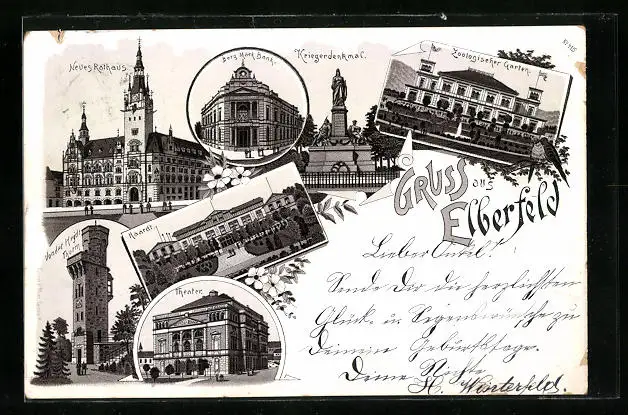 Neues Rathaus.
Berg. Märk. Bank.
Kriegerdenkmal.
Zoologischer Garten.
GRUSS aus
Elberfeld
Haardt.
von der Heydt
Thurm
Theater.
Lieber Onkel!
Sende Dir die herzlichsten
Glück- u. Segenswünsche zu
Deinem Geburtstage.
Deine Nichte
H. Winterfeld.